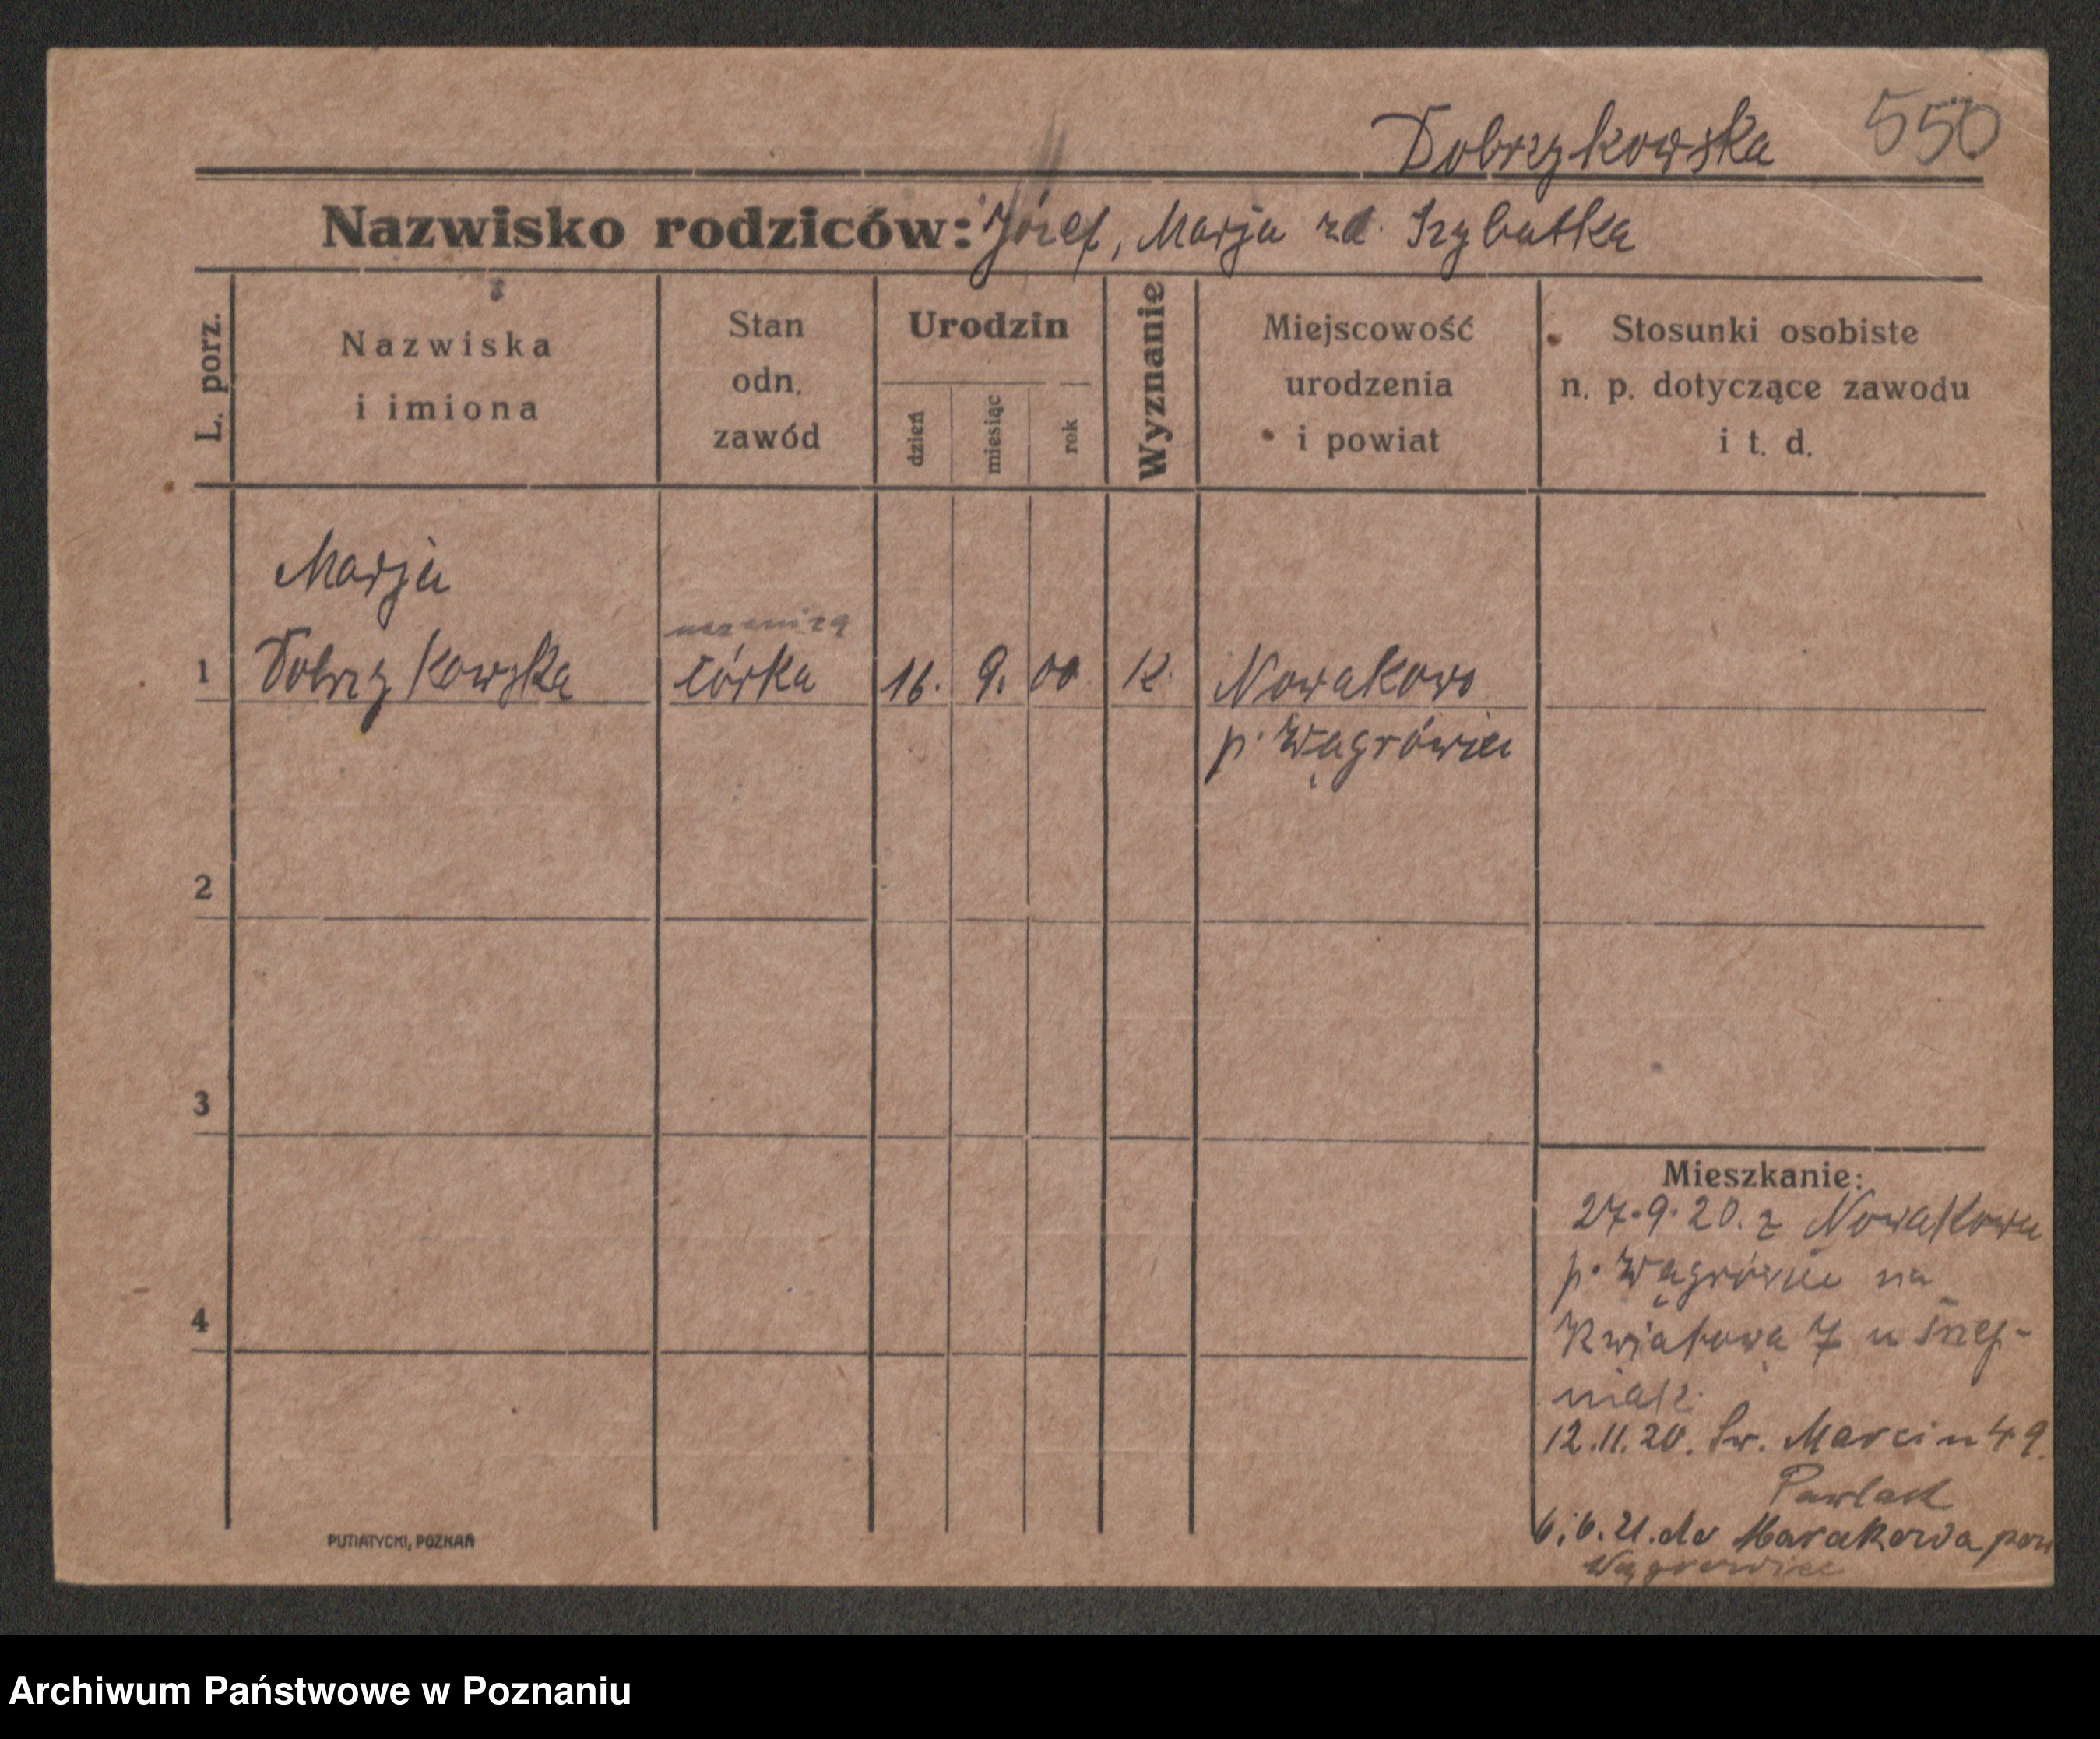 Dobrzykowska 550
Nazwisko rodziców: Józef, Marja zd. Szybatka
L. porz.
Nazwiska
i imiona
Stan
odn.
zawód
Urodzin
dzień
miesiąc
rok
Wyznanie
Miejscowość
urodzenia
i powiat
Stosunki osobiste
n. p. dotyczące zawodu
i t. d.
Marja
1 Dobrzykowska córka 16. 9. 00. K. Nowakowo
p. Wągrówiec
2
3
4
Mieszkanie:
27.9.20. z Nowakowa
p. Wągrówiec na
Kwiatową 7 u
12.11.20. Św. Marcin 49.
Pawlak
6.6.21. do pow
Wągrowiec
PUTIATYCKI, POZNAŃ
Archiwum Państwowe w Poznaniu